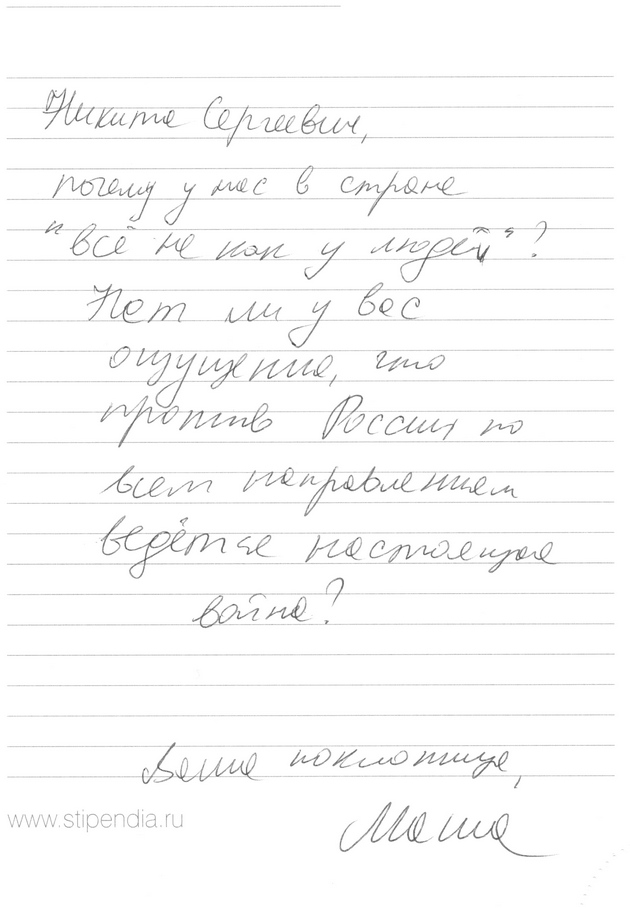 Никита Сергеевич,
почему у нас в стране
"всё не как у людей"?
Нет ли у вас
ощущения, что
против России по
всем направлениям
ведётся настоящая
война?
Ваша поклонница,
www.stipendia.ru
Маша